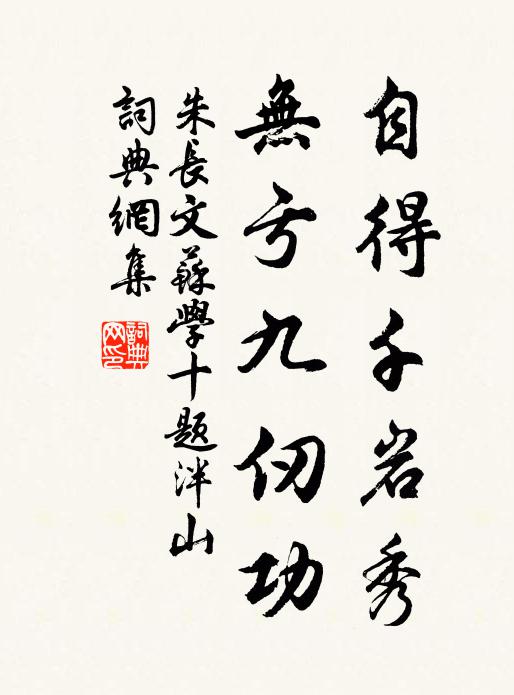 自得千岩秀
無亏九仞功
朱長文蘇學十題泮山
詞典網集
詞典網印